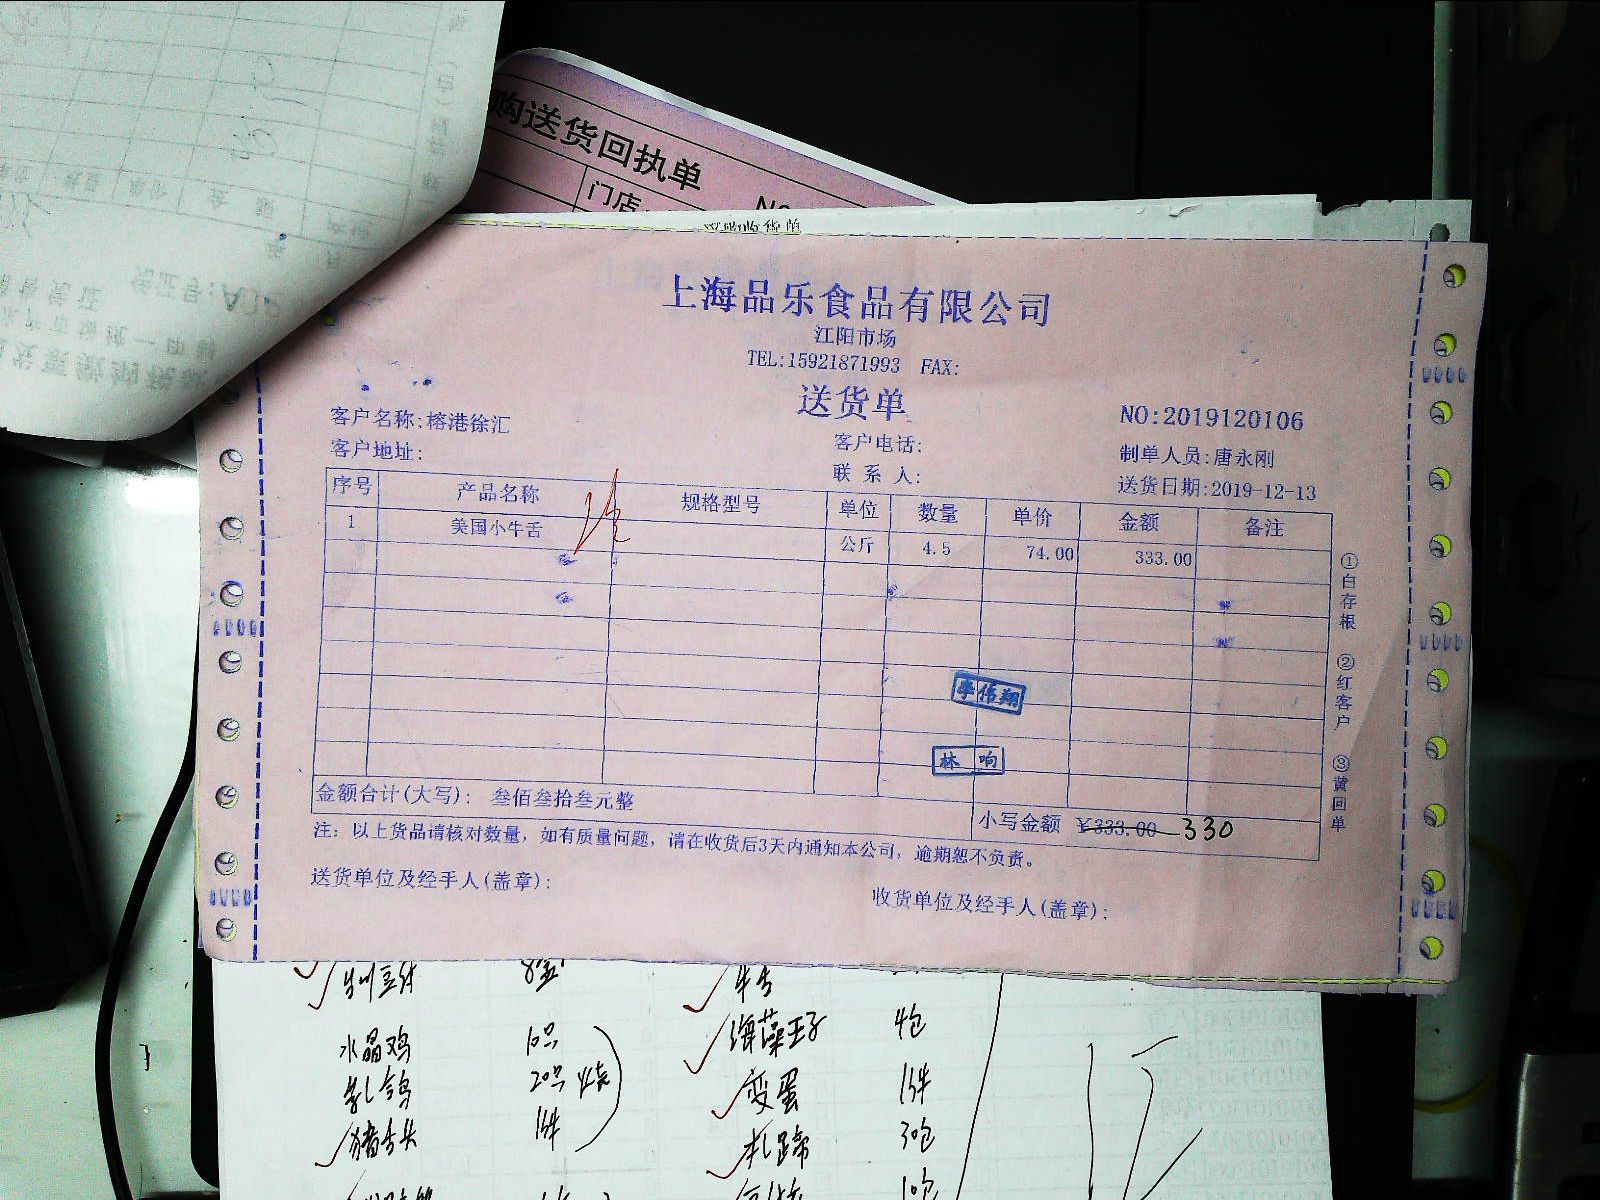 购送货回执单
门店
No
上海品乐食品有限公司
江阳市场
TEL:15921871993 FAX:
送货单
客户名称:榕港徐汇
客户电话:
NO:2019120106
客户地址:
联 系 人:
制单人员:唐永刚
送货日期:2019-12-13
序号 产品名称 规格型号 单位 数量 单价 金额 备注
1 美国小牛舌 公斤 4.5 74.00 333.00
①白存根 ②红客户 ③黄回单
李伟翔
林 响
金额合计(大写): 叁佰叁拾叁元整
小写金额 ¥333.00 330
注: 以上货品请核对数量, 如有质量问题, 请在收货后3天内通知本公司, 逾期恕不负责。
送货单位及经手人(盖章):
收货单位及经手人(盖章):
水晶鸡 10只
乳鸽 20只
猪舌头 1件
牛舌
海藻王子 4包
变蛋 1件
扎蹄 3包
10包